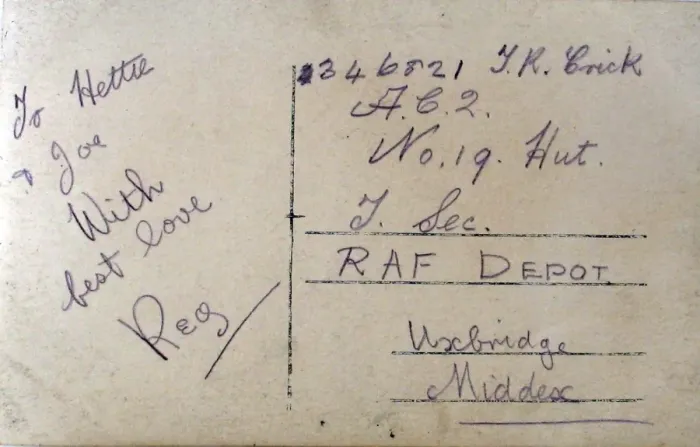 To Hettie
& Joe
With
best love
Reg
346521 T.R. Crick
A.C.2.
No.19. Hut.
T. Sec.
RAF DEPOT.
Uxbridge
Middex